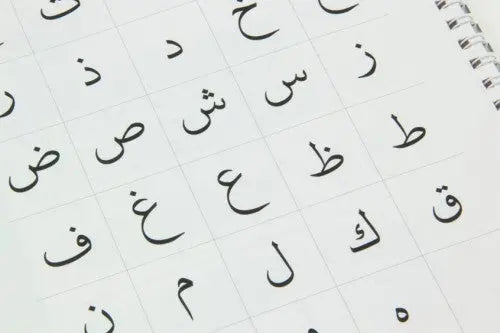 خ د ذ ر
ز س ش ص ض
ط ظ ع غ ف
ق ك ل م ن
ه